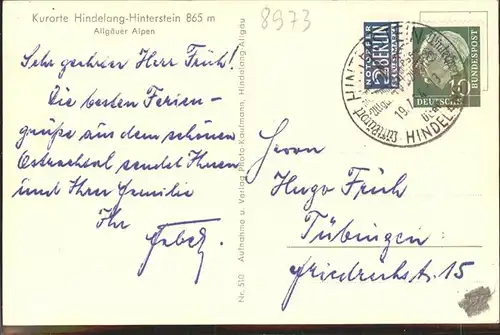 Kurorte Hindelang-Hinterstein 865 m
Allgäuer Alpen
8973
Sehr geehrter Herr Früh!
Die besten Ferien-
grüße aus dem schönen
Ostrachtal sendet Ihnen
und Ihrer Familie
Ihr
Nr. 510 Aufnahme u. Verlag Photo-Kaufmann, Hindelang-Allgäu
NOTOPFER
2 BERLIN
STEUERMARKE
DEUTSCHE
BUNDESPOST
10
HINDEL
Herrn
Hugo Früh
Tübingen
Friedrichst. 15